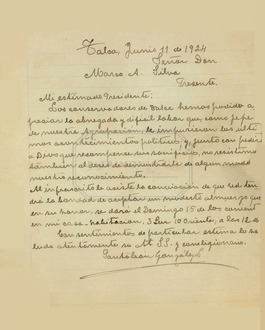 Talca, Junio 11 de 1924
Señor Don
Marco A. Silva
Presente.
Mi estimado Presidente:
Los conservadores de Talca hemos podido a
preciar la abnegada y dificil labor que, como jefe
de nuestra Agrupacion, le impusieron los ulti
mos acontecimientos politicos y, junto con pedir
a Dios que recompense sus sacrificios, no resistimos
tambien al deseo de demostrarle de algun modo
nuestro reconocimiento.
Al infrascrito le asiste la conciencia de que Ud. ten
drá la bondad de aceptar un modesto almuerzo que
en su honor, se dará el Domingo 15 de los corrient
en mi casa-habitacion, 3 Sur 10 Oriente, a las 12 ½
Con sentimientos de particular estima lo sa
luda atentamente su Att. S.S. y correligionario.
Pantaleon Gonzalez